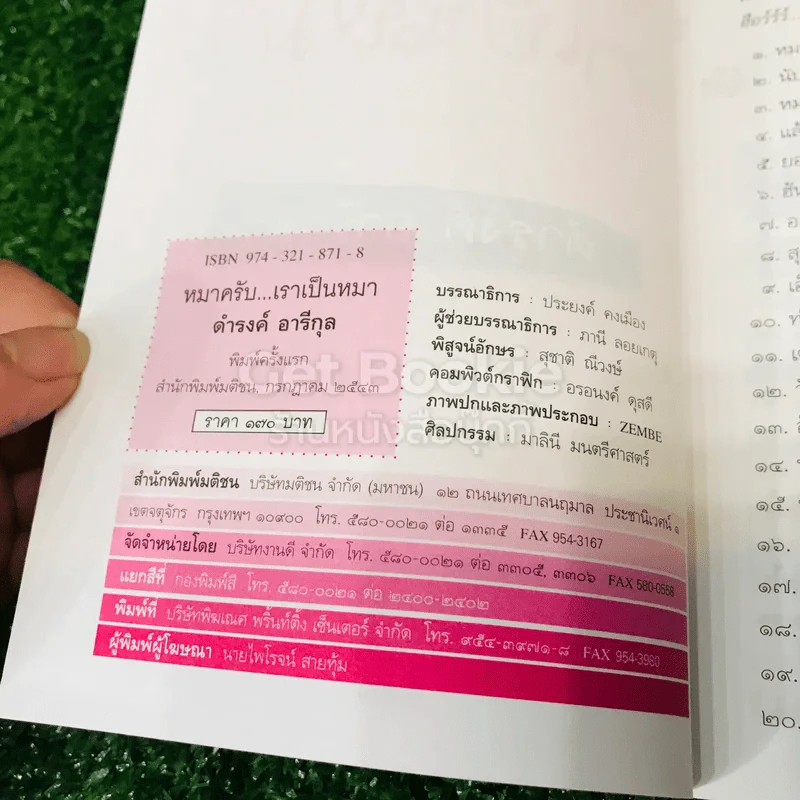 ISBN 974 - 321 - 871 - 8
หมาครับ...เราเป็นหมา
ดำรงค์ อารีกุล
พิมพ์ครั้งแรก
สำนักพิมพ์มติชน, กรกฎาคม ๒๕๔๓
ราคา ๑๗๐ บาท
บรรณาธิการ : ประยงค์ คงเมือง
ผู้ช่วยบรรณาธิการ : ภานี ลอยเกตุ
พิสูจน์อักษร : สุชาติ ณีวงษ์
คอมพิวต์กราฟิก : อรอนงค์ ดุสดี
ภาพปกและภาพประกอบ : ZEMBE
ศิลปกรรม : มาลินี มนตรีศาสตร์
Get Bookie
ร้านหนังสือปุกุ
สำนักพิมพ์มติชน บริษัทมติชน จำกัด (มหาชน) ๑๒ ถนนเทศบาลนฤมาล ประชานิเวศน์ ๑
เขตจตุจักร กรุงเทพฯ ๑๐๙๐๐ โทร. ๕๘๐-๐๐๒๑ ต่อ ๑๓๓๕ FAX 954-3167
จัดจำหน่ายโดย บริษัทงานดี จำกัด โทร. ๕๘๐-๐๐๒๑ ต่อ ๓๓๐๕, ๓๓๐๖ FAX 580-0558
แยกสีที่ กองพิมพ์สี โทร. ๕๘๐-๐๐๒๑ ต่อ ๒๔๐๐-๒๔๐๒
พิมพ์ที่ บริษัทพิฆเณศ พริ้นท์ติ้ง เซ็นเตอร์ จำกัด โทร. ๙๕๔-๓๙๗๑-๘ FAX 954-3980
ผู้พิมพ์ผู้โฆษณา นายไพโรจน์ สายทุ้ม
๑.
๒.
๓.
๔.
๕.
๖.
๗.
๘.
๙.
๑๐.
๑๑.
๑๒.
๑๓.
๑๔.
๑๕.
๑๖.
๑๗.
๑๘.
๑๙.
๒๐.